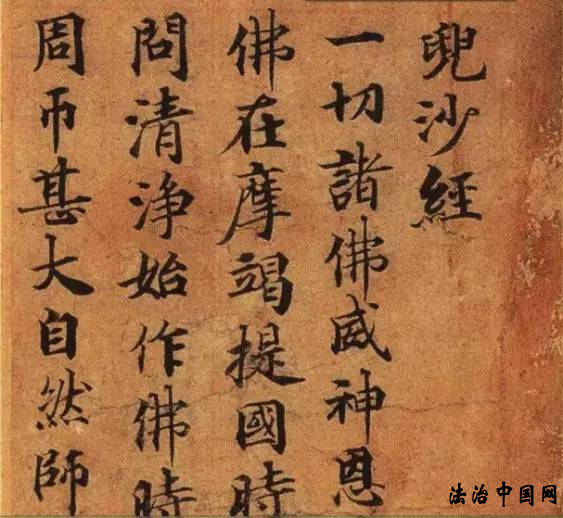 兜沙經
一切諸佛威神恩
佛在摩竭提國時
問清淨始作佛時
周帀甚大自然師
法治中国网